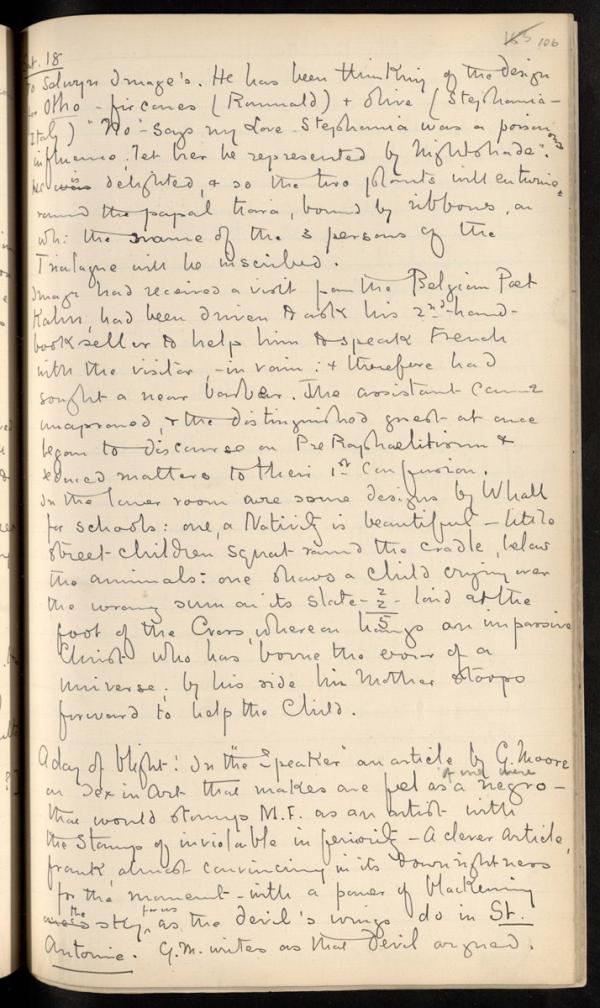 106
Oct. 18
To Selwyn Image's. He has been thinking of the design
for Otho - fir cones (Romuald) + olive (Stephania -
Italy) "No" - says my Love - Stephania was a poisonous
influence, let her be represented by Nightshade".
He is delighted, + so the two plants will entwine
round the papal tiara, bound by ribbons, on
wh: the name of the 3 persons of the
Trialogue will be inscribed.
Image had received a visit from the Belgian Poet
Kahn, had been driven to ask his 2nd-hand-
bookseller to help him to speak French
with the visitor, - in vain: + therefore had
sought a near barber. The assistant came
unaproned, + the distinguished guest at once
began to discourse on PreRaphaelitism +
reduced matters to their 1st Confusion.
In the lower room are some designs by Whall
for schools: one, a Nativity is beautiful - little
street-children squat round the cradle, below
the animals: one shows a child crying over
the wrong sum on its slate - 2 2 5 - laid at the
foot of the Cross, whereon hangs an impassive
Christ who has borne the error of a
universe; by his side his Mother stoops
forward to help the Child.
A day of blight! In the "Speaker" an article by G. Moore
on Sex in Art that makes one feel as if one were a negro -
that would stamp M.F. as an artist with
the stamp of inviolable inferiority - A clever article,
frank, almost convincing in its downrightness
for the moment - with a power of blackening
the sky, as the Devil's wings do in St.
Antoine. G.M. writes as that Devil argued.